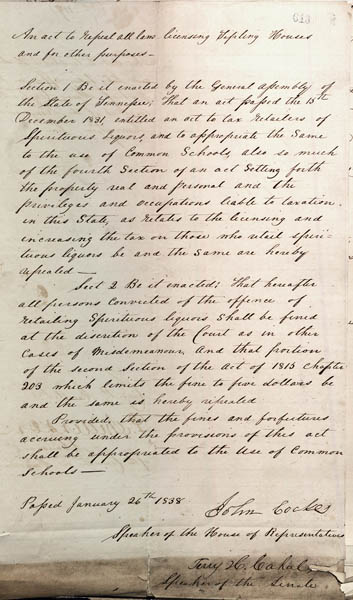 An act to repeal all laws licensing Tipling Houses
and for other purposes—
Section 1 Be it enacted by the General assembly of
the State of Tennessee, That an act passed the 15th
December 1831 entitled an act to tax retailers of
Spirituous liquors, and to appropriate the same
to the use of Common Schools, also so much
of the fourth Section of an act setting forth
the property real and personal and the
priviliges and occupations liable to taxation
in this State, as relates to the licensing and
increasing the tax on those who retail spiri-
tuous liquors be and the same are hereby
repealed—
Sect 2 Be it enacted; That hereafter
all persons convicted of the offence of
retailing Spirituous liquors shall be fined
at the discretion of the Court as in other
Cases of Misdemeanour, and that portion
of the second section of the act of 1813 Chapter
203 which limits the fine to five dollars be
and the same is hereby repealed
Provided, that the fines and forfeitures
accruing under the provisions of this act
shall be appropriated to the Use of Common
Schools—
Passed January 26th 1838
John Cocke
Speaker of the House of Representatives
Terry H. Cahal
Speaker of the Senate